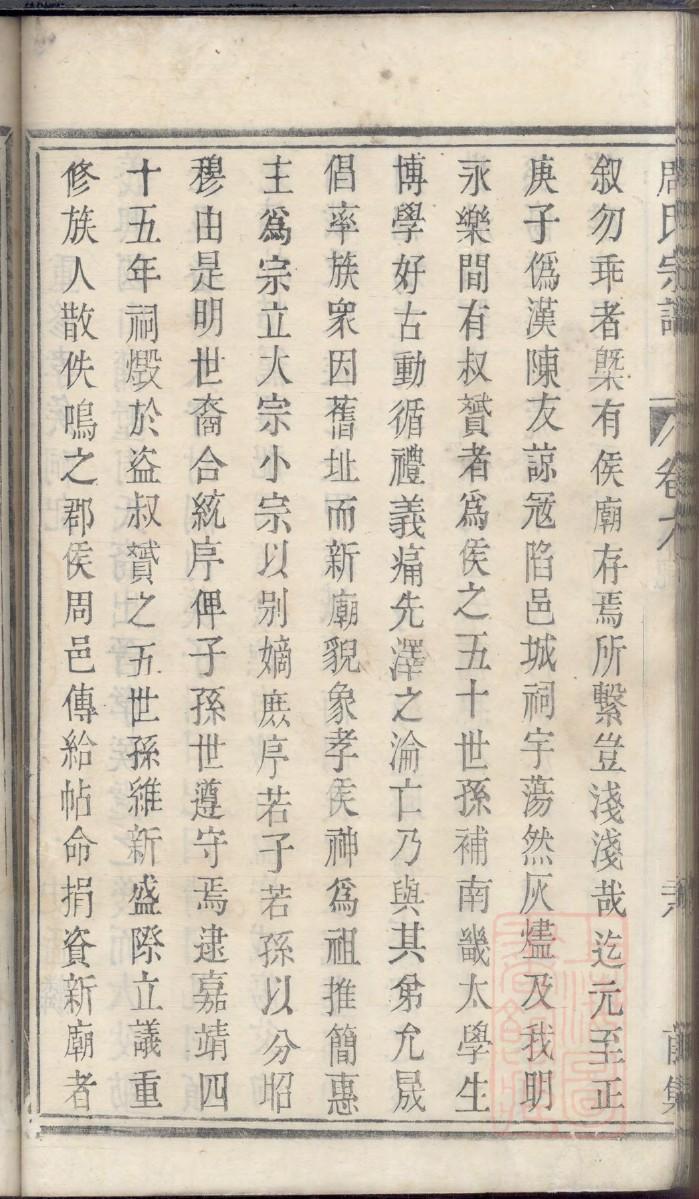 周氏宗譜 卷六
叙勿乖者槩有侯廟存焉所繫豈淺淺哉迄元至正
庚子僞漢陳友諒冦陷邑城祠宇蕩然灰燼及我明
永樂間有叔贇者爲侯之五十世孫補南畿太學生
博學好古動循禮義痛先澤之淪亡乃與其弟允晟
倡率族衆因舊址而新廟貌象孝侯神爲祖推簡惠
主爲宗立大宗小宗以别嫡庶序若子若孫以分昭
穆由是明世裔合統序俾子孫世遵守焉逮嘉靖四
十五年祠燬於盜叔贇之五世孫維新盛際立議重
修族人散佚鳴之郡侯周邑傳給帖命捐資新廟者